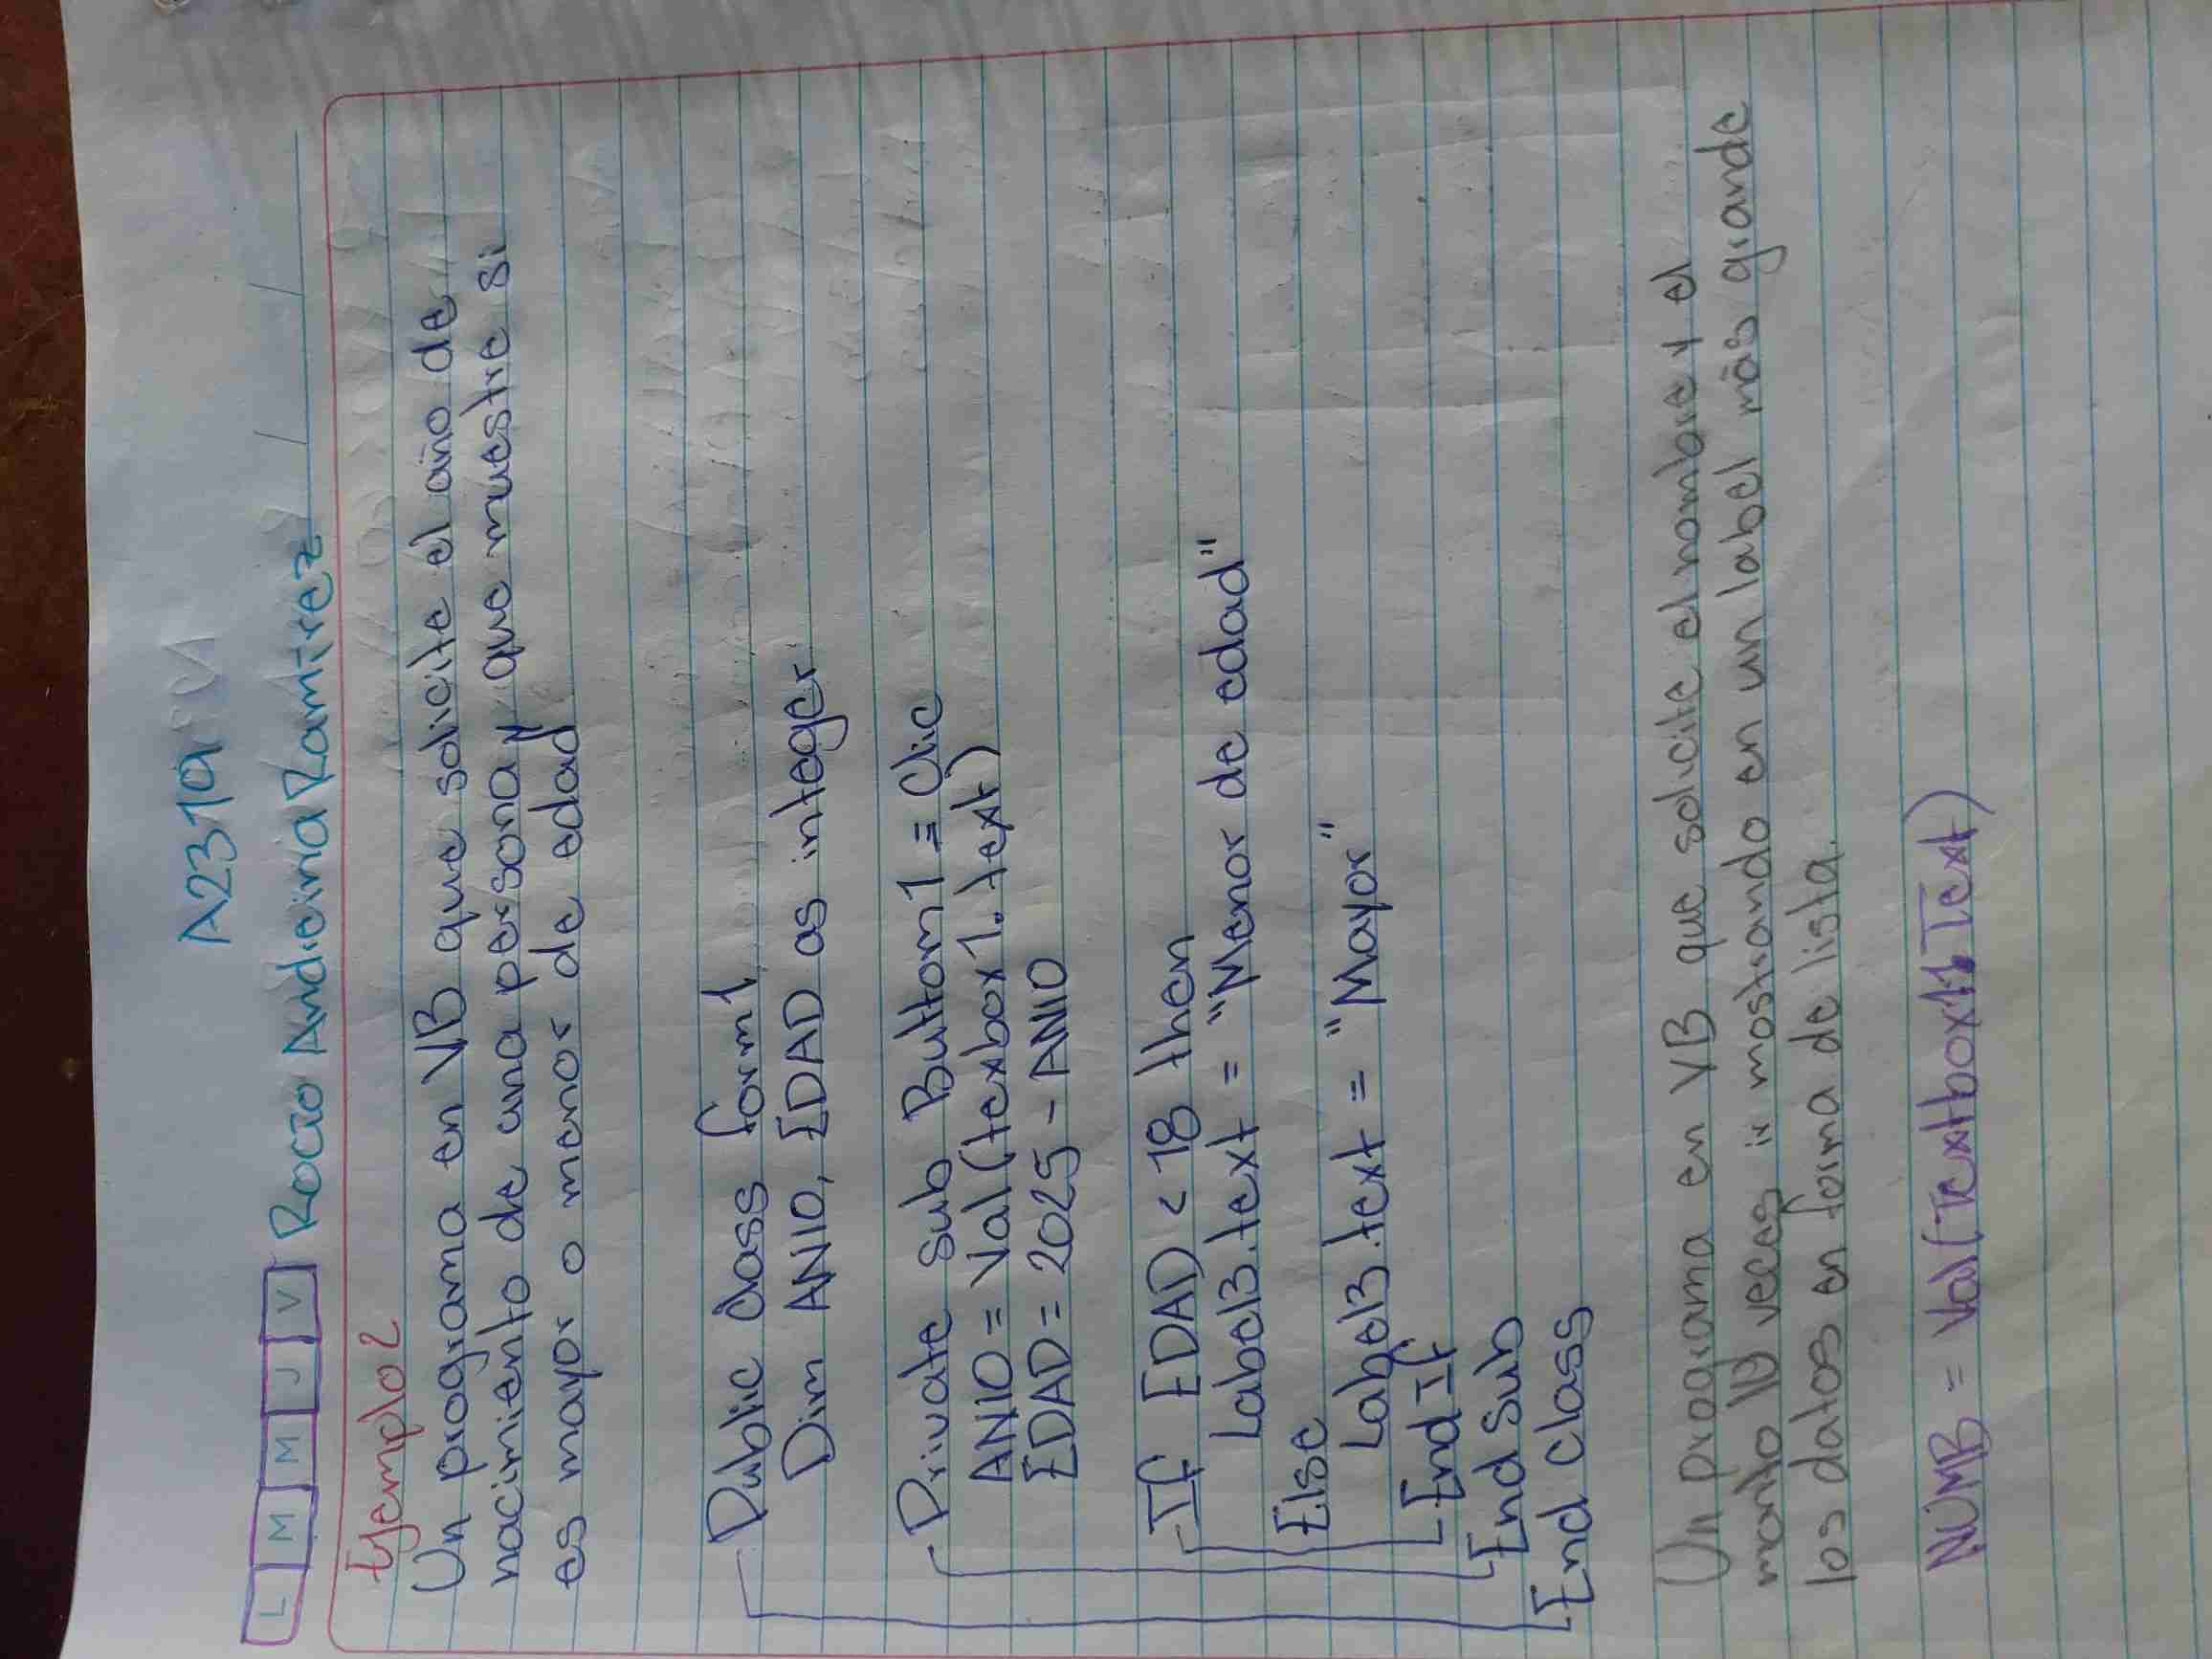 A2319
L M M J V Rocio Andreina Ramirez
Ejemplo 2
Un programa en VB que solicite el año de
nacimiento de una persona y que muestre si
es mayor o menor de edad
Public class form1
Dim ANIO, EDAD as integer
Private sub Buttom1 = Clic
ANIO = Val(texbox1.text)
EDAD = 2025 - ANIO
If EDAD < 18 then
Label3.text = "Menor de edad"
Else
Label3.text = "Mayor"
End If
End Sub
End class
Un programa en VB que solicite el nombre y el
monto 10 veces ir mostrando en un label más grande
los datos en forma de lista.
NUMB = Val(Textbox11.Text)